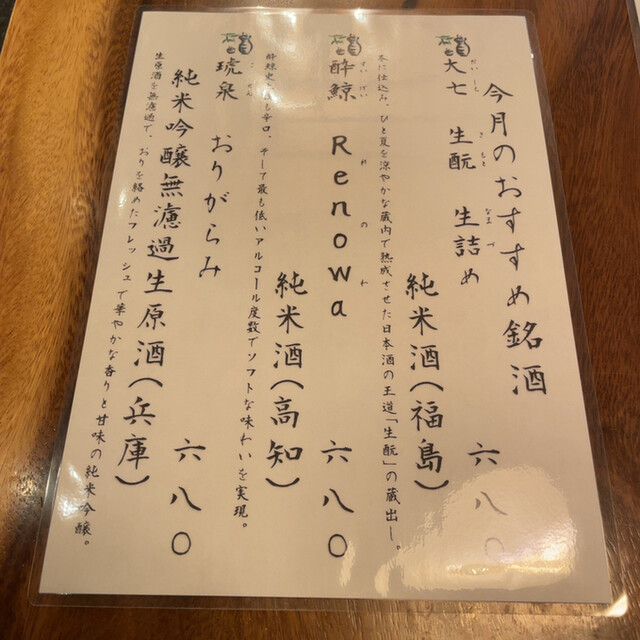 今月のおすすめ銘酒
大七 生酛 生詰め 六八〇
だいしち きもと なまづ
純米酒(福島)
冬に仕込み、ひと夏を涼やかな蔵内で熟成させた日本酒の王道「生酛」の蔵出し。
酔鯨 Renowa 六八〇
すいげい れのわ
純米酒(高知)
酔鯨史 辛口。チーア最も低いアルコール度数でソフトな味わいを実現。
琥泉 おりがらみ 六八〇
こせん
純米吟醸無濾過生原酒(兵庫)
生原酒を無濾過で、おりを絡めたフレッシュで華やかな香りと甘味の純米吟醸。